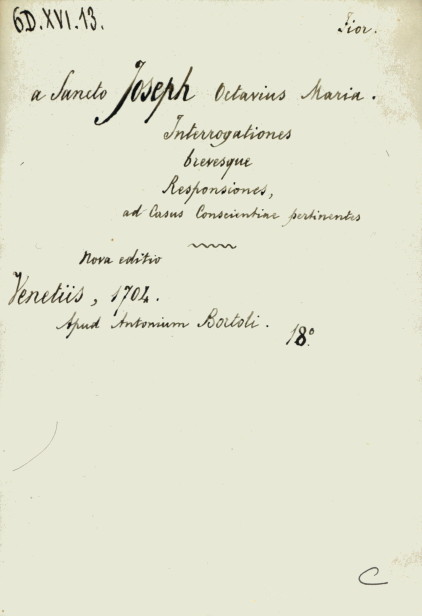 6D.XVI.13.
Fior.
a Sancto Joseph Octavius Maria.
Interrogationes
brevesque
Responsiones,
ad Casus Conscientiae pertinentes
Nova editio
Venetiis, 1704.
Apud Antonium Bortoli.
18°
C